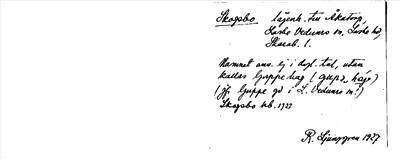 Skogsbo lägenh. tu Åkatorp,
Larke Vedums sn, Larke hd,
Skarab. l.
Namnet anv. ej i dagl. tal, utan
kallas Guppe hag (gupa, håg)
(jfr Guppe gd i L. Vedums sn!)
Skogsbo kb. 1927
R. Ljunggren 1927